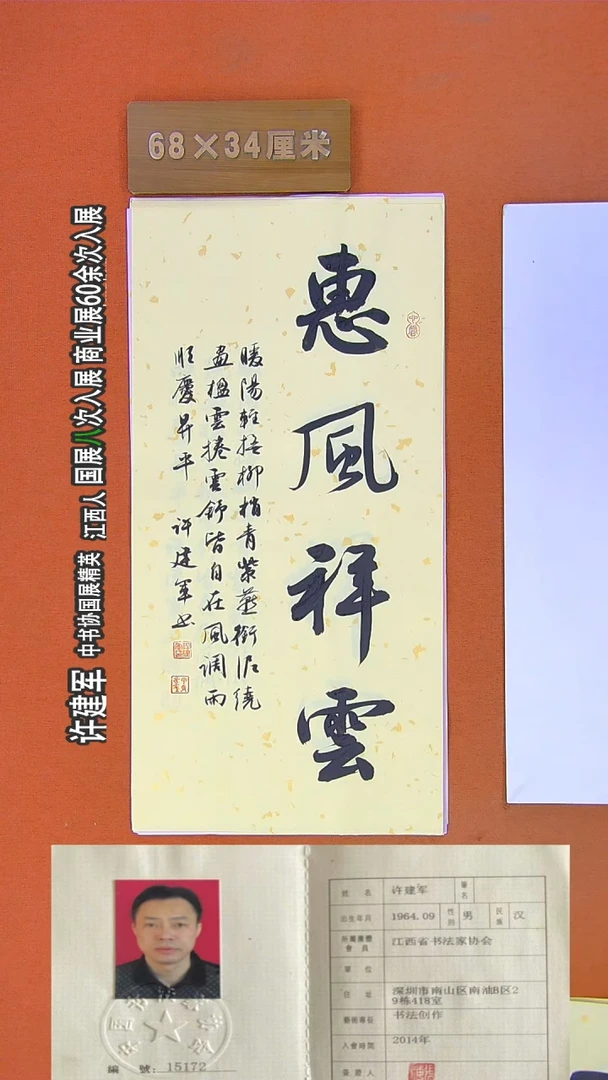 68×34厘米
许建军 中书协国展精英 江西人 国展八次入展 商业展60余次入展
惠風祥雲
暖陽輕拂柳梢青紫燕銜泥繞
畫楹雲捲雲舒皆自在風調雨
順慶昇平 许建军书
姓名 许建军 筆名
出生年月 1964.09 性别 男 民族 汉
所屬團體會員 江西省书法家协会
單位
住址 深圳市南山区南油B区2
9栋418室
藝術專長 书法创作
入會時間 2014年
編號:15172